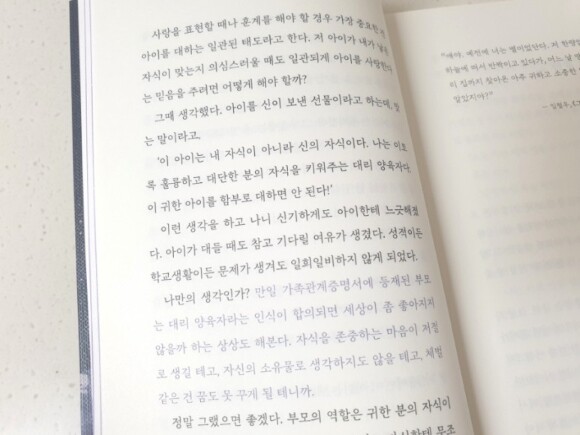 사랑을 표현할 때나 훈계를 해야 할 경우 가장 중요한
아이를 대하는 일관된 태도라고 한다. 저 아이가 내가 낳은
자식이 맞는지 의심스러울 때도 일관되게 아이를 사랑한다
는 믿음을 주려면 어떻게 해야 할까?
그때 생각했다. 아이를 신이 보낸 선물이라고 하는데,
는 말이라고.
'이 아이는 내 자식이 아니라 신의 자식이다. 나는 이토
록 훌륭하고 대단한 분의 자식을 키워주는 대리 양육자다.
이 귀한 아이를 함부로 대하면 안 된다!'
이런 생각을 하고 나니 신기하게도 아이한테 느긋해졌
다. 아이가 대들 때도 참고 기다릴 여유가 생겼다. 성적이든
학교생활이든 문제가 생겨도 일희일비하지 않게 되었다.
나만의 생각인가? 만일 가족관계증명서에 등재된 부모
는 대리 양육자라는 인식이 합의되면 세상이 좀 좋아지지
않을까 하는 상상도 해본다. 자식을 존중하는 마음이 저절
로 생길 테고, 자신의 소유물로 생각하지도 않을 테고, 체벌
같은 건 꿈도 못 꾸게 될 테니까.
정말 그랬으면 좋겠다. 부모의 역할은 귀한 분의 자식이
"애야, 예전에 너는 별이었단다. 저 한
하늘에 떠서 반짝이고 있다가, 어느 날
리 집까지 찾아온 아주 귀하고 소중한
알았지아?"